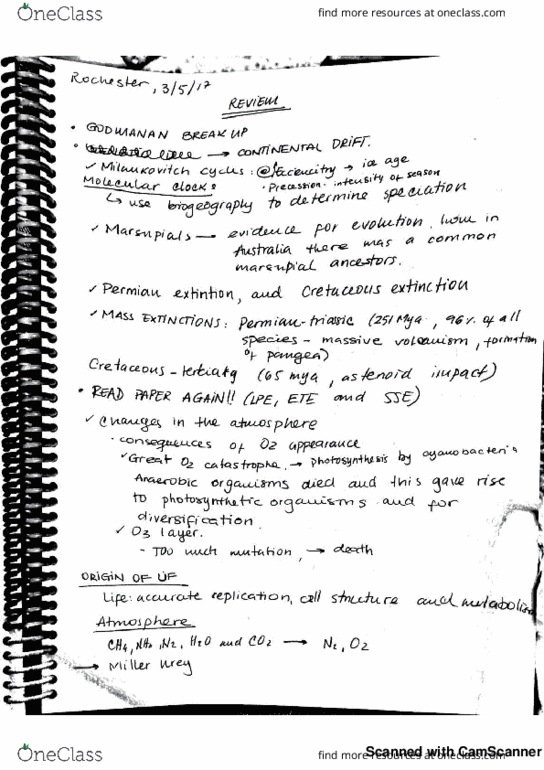 OneClass
find more resources at oneclass.com
Rochester, 3/5/17
REVIEW
• GODWANAN BREAK UP
• → CONTINENTAL DRIFT.
✓ Milankovitch cycles: → ice age
• Precession • intensity of season
Molecular clock:
↳ use biogeography to determine speciation
✓ Marsupials — evidence for evolution, how in
Australia there was a common
marsupial ancestors.
✓ Permian extintion, and Cretaceous extinction
✓ MASS EXTINCTIONS: Permian-triassic (251 Mya, 96% of all
species - massive volcanism, formation
of pangea)
Cretaceous - tertiary (65 mya, asteroid impact)
• READ PAPER AGAIN!! (LPE, ETE and SSE)
✓ Changes in the atmosphere
• consequences of O2 appearance
✓ Great O2 catastrophe → photosynthesis by cyanobacteria
Anaerobic organisms died and this gave rise
to photosynthetic organisms and for
diversification.
✓ O3 layer.
- TOO much mutation, → death
ORIGIN OF LIFE
Life: accurate replication, cell structure and metabolism
Atmosphere
CH4, NH3, N2, H2O and CO2 → N2, O2
→ Miller Urey
Scanned with CamScanner
OneClass
find more resources at oneclass.com